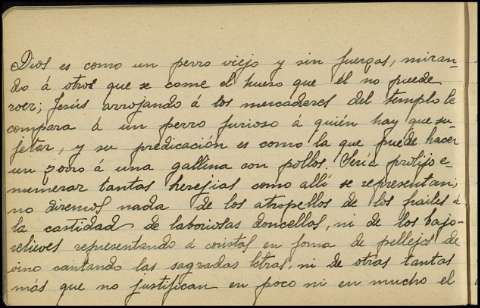 Dios es como un perro viejo y sin fuerzas, miran-
do á otros que se come el hueso que él no puede
roer; Jesús arrojando á los mercaderes del templo le
compara á un perro furioso á quién hay que su-
jetar, y su predicación es como la que puede hacer
un zorro á una gallina con pollos. Sería prolijo e-
numerar tantas herejias como allí se representan;
no diremos nada de los atropellos de los frailes á
la castidad de laboriosas doncellas, ni de los bajo-
relieves representando á coristas en forma de pellejos de
vino cantando las sagradas letras, ni de otras tantas
más que no justifican en poco ni en mucho el